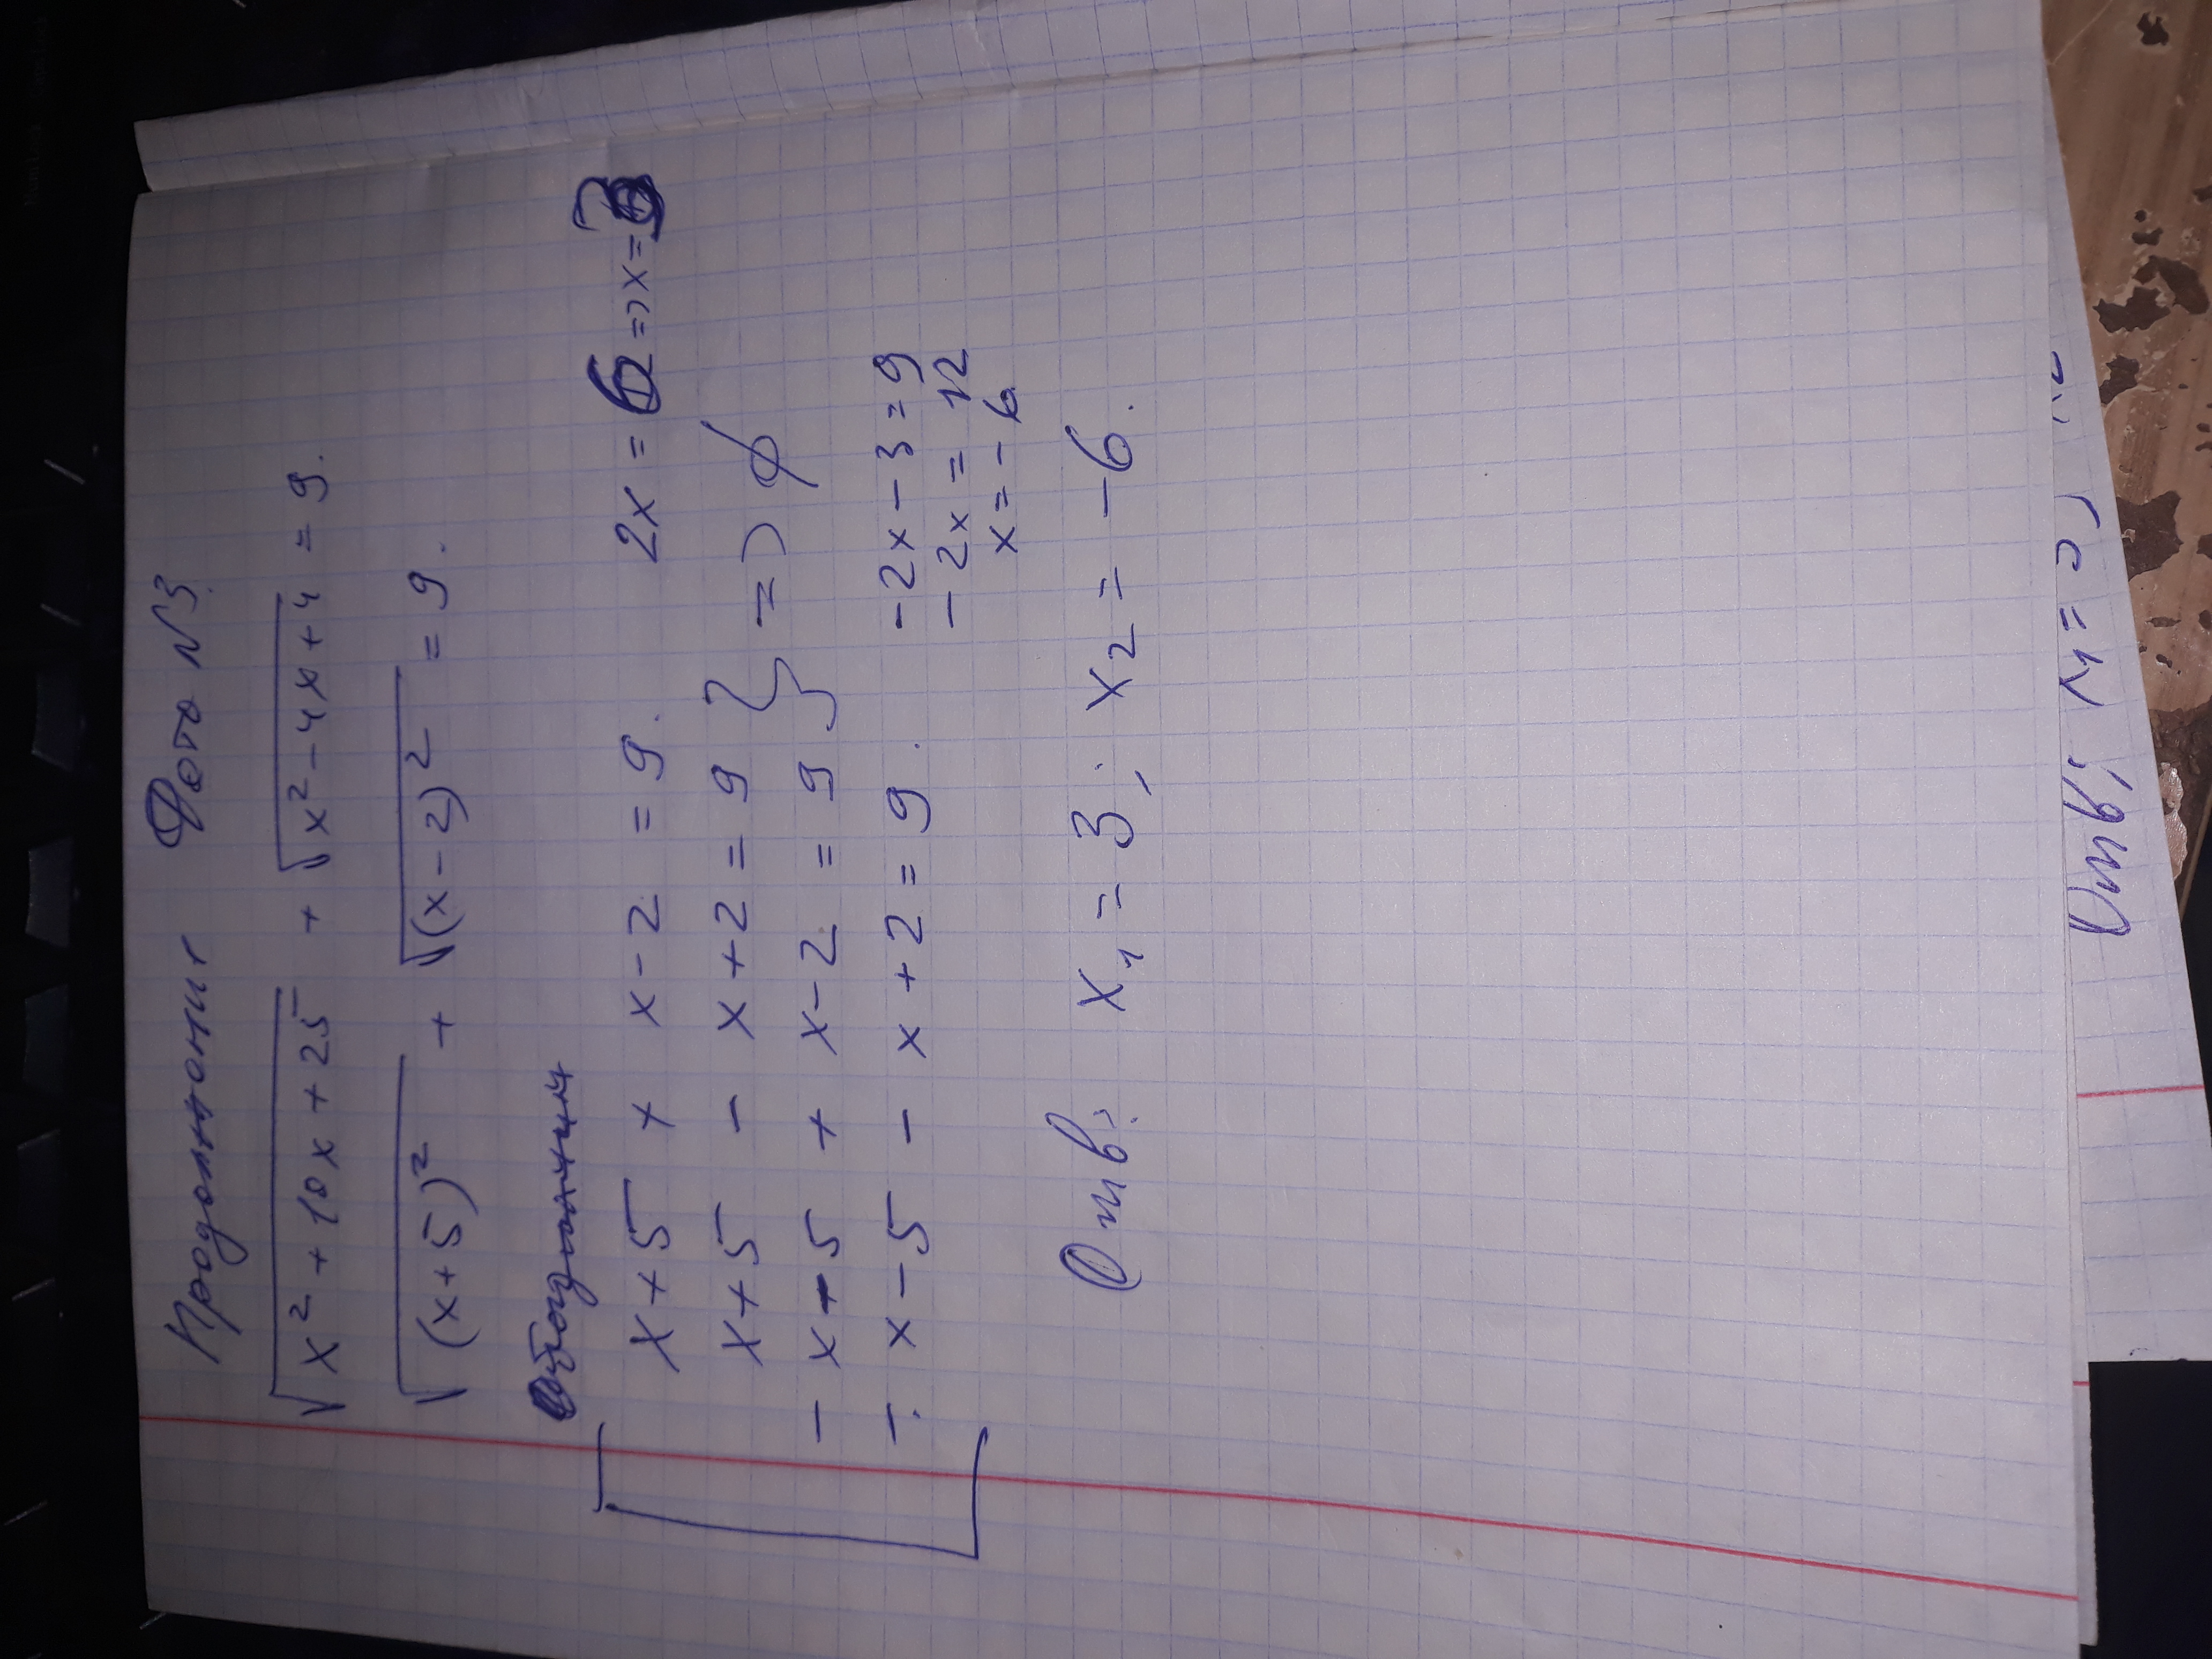 Продолжение Фото №3.
√x² + 10x + 25 + √x² - 4x + 4 = 9.
√(x+5)² + √(x-2)² = 9.
x+5 + x-2 = 9. 2x = 6 => x = 3
x+5 - x+2 = 9
-x-5 + x-2 = 9 } => ∅
-x-5 - x+2 = 9. -2x-3=9
-2x = 12
x = -6
Отв: x₁ = 3; x₂ = -6.
Отв;